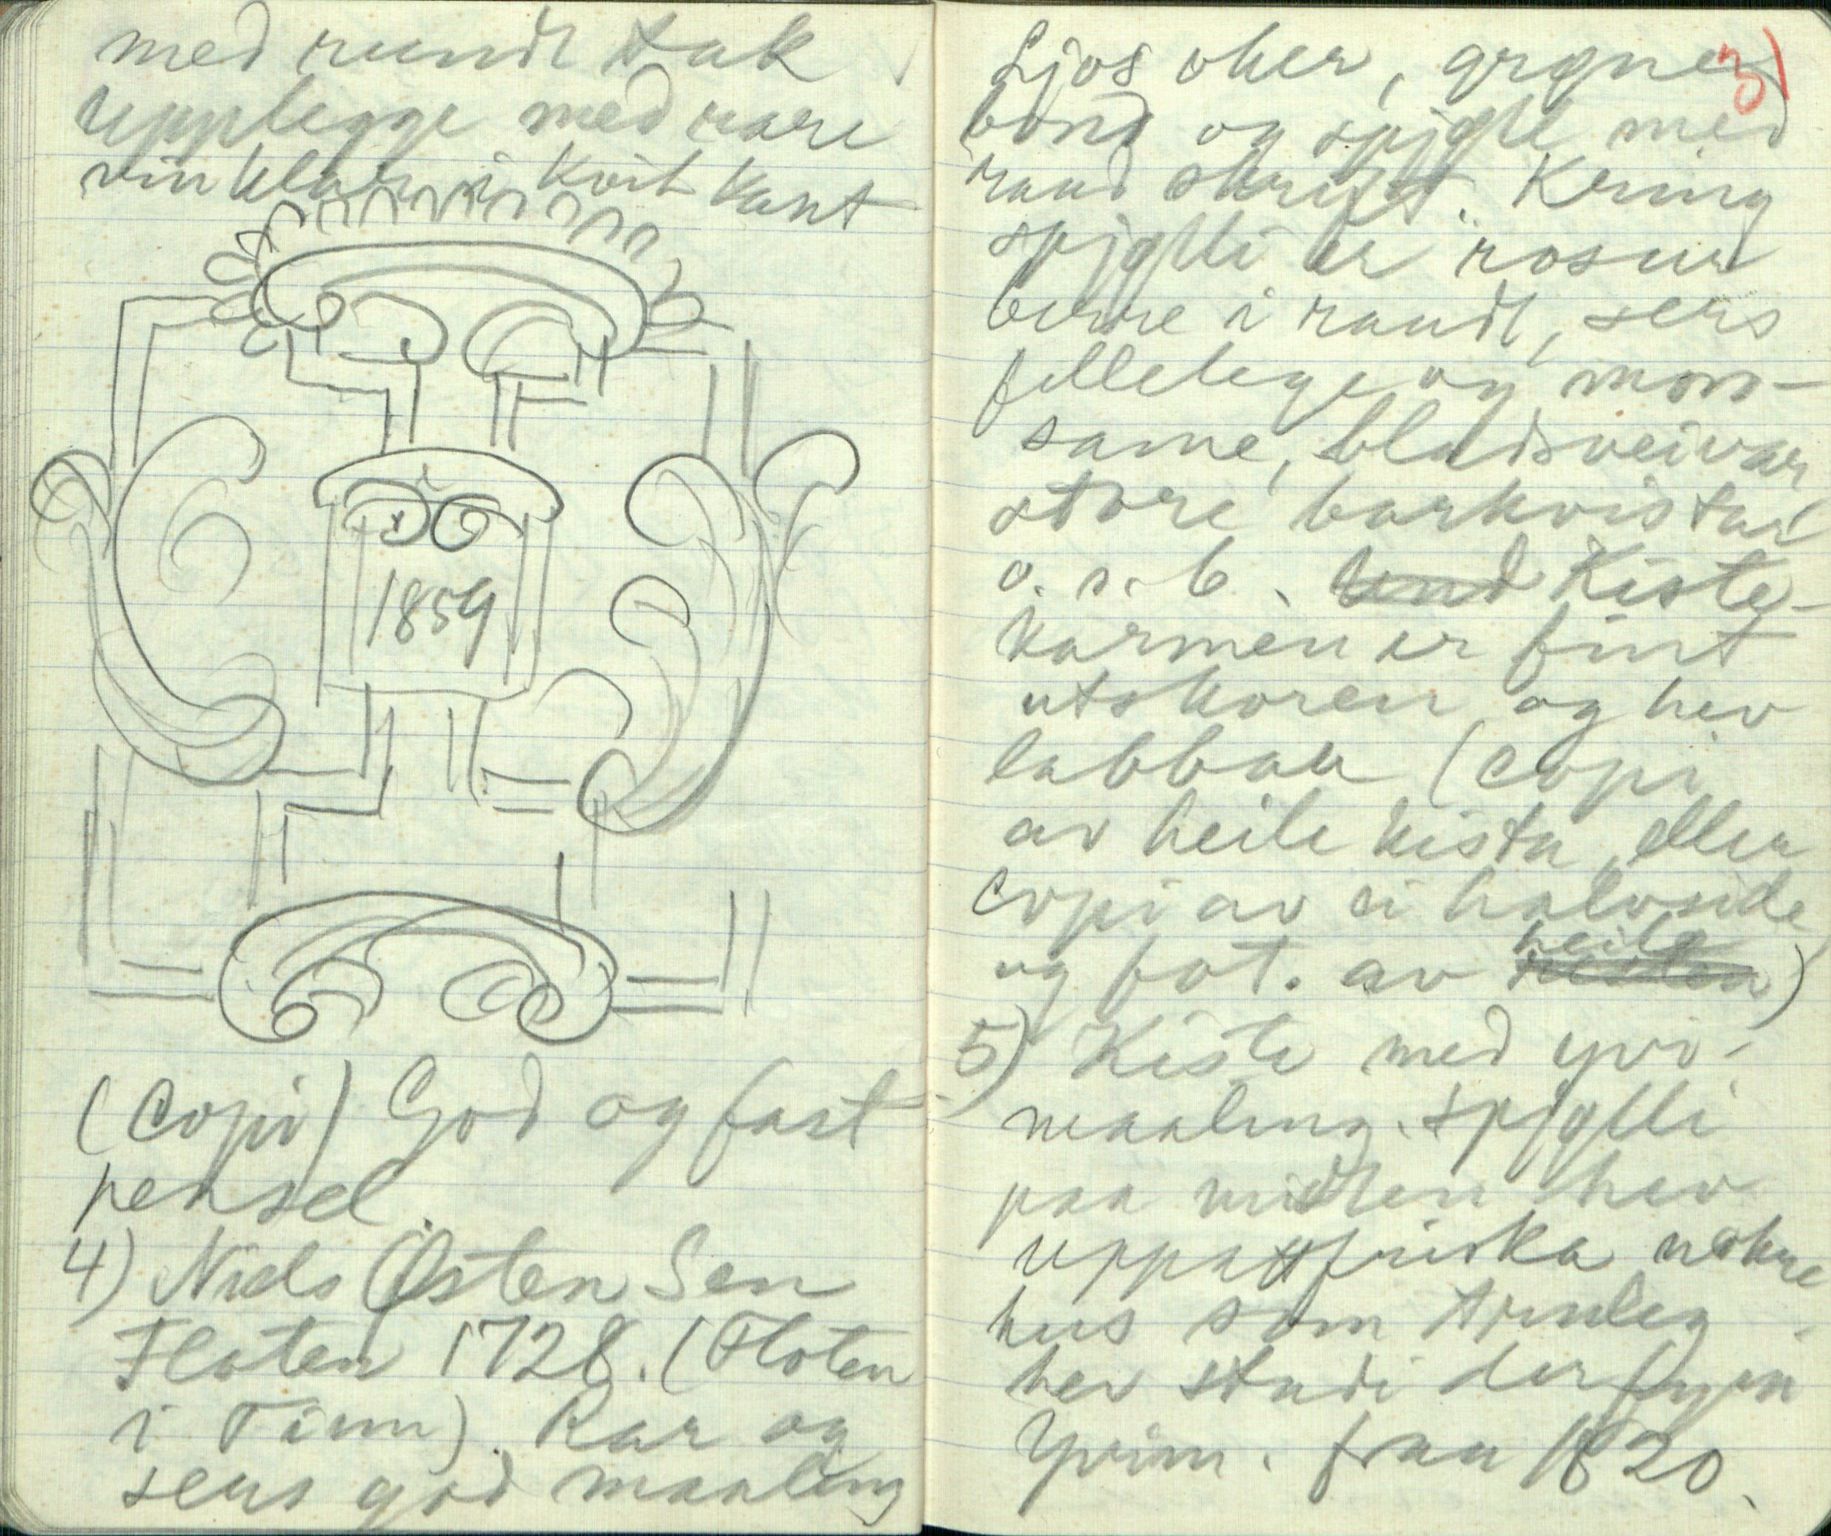 med rundt tak
upplegge med rare
vinklar i kvit kant
1859
(Copi) God og fast
pensel.
4) Niels Østen Sen
Floten 1728. (Floten
i Tinn). Rar og
sers god maaling
31
Ljos oker, grøne
bond og spjgll med
raud skrift. Kring
spjglli er rosur
berre i raudt, sers
fillelege og mor-
same, bladsveivar
store barkvistar
o. s. b. Und Kiste-
karmen er fint
utskoren og hev
labbar (Copi
av heile kista, eller
Copi av ei halvside
og fot. av heile)
5) Kiste med yvi-
maaling. Spjglli
paa midten hev
uppattfriska nokre
hus som truleg
hev stadi der fyrr
Yvim. fraa 1820.